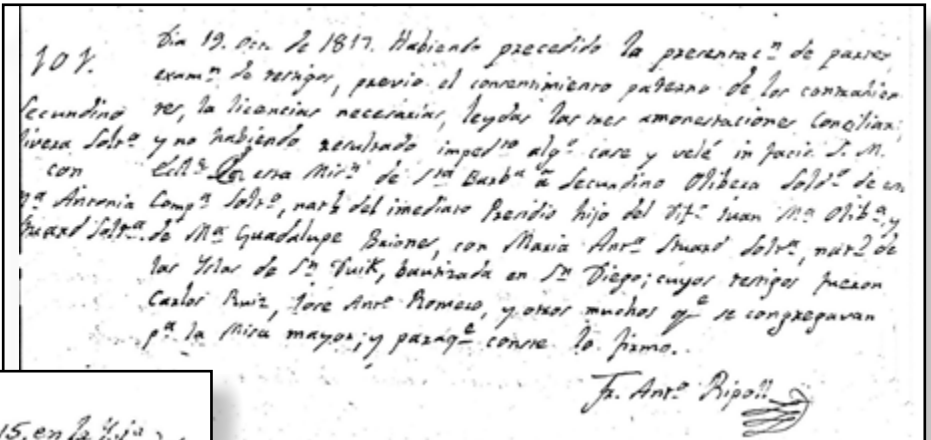 101.
Secundino
Olivera Solt.º
con
M.ª Antonia
Stuard Solt.ª
Dia 19. Oct. de 1817. Habiendo precedido la presentac.ⁿ de partes,
exam.ⁿ de testigos, previo el consentimiento paterno de los contrahien-
tes, la licencias necesarias, leydas las tres amonestaciones Conciliar;
y no habiendo resultado imped.to alg.º case y velé in facie S. M.
Eccl.ª en esta Mis.ⁿ de S.ta Barb.ª à Secundino Olibera Sold.º de es.
Comp.ª Solt.º, nat.l del imediato Presidio hijo del Juan M.ª Olib.ª, y
de M.ª Guadalupe Briones, con Maria Ant.ª Stuard Solt.ª, nat.l de
las Yslas de S.ⁿ Tuik, bautizada en S.ⁿ Diego; cuyos testigos fueron
Carlos Ruiz, Jose Ant.º Romero, y otros muchos q.e se congregavan
p.ª la Misa mayor; y paraq.e conste lo firmo.
Fr. Ant.º Ripoll
15. en la